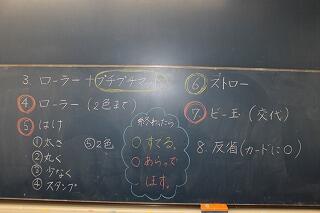 3. ローラー + プチプチマット
④ ローラー (2色まで)
⑤ はけ
① 太さ
② 丸く
③ 少なく
④ スタンプ
⑤ 2色
終わったら
○ すてる。
○ あらって
ほす。
⑥ ストロー
⑦ ビー玉 (交代)
8. 反省(カードに○)